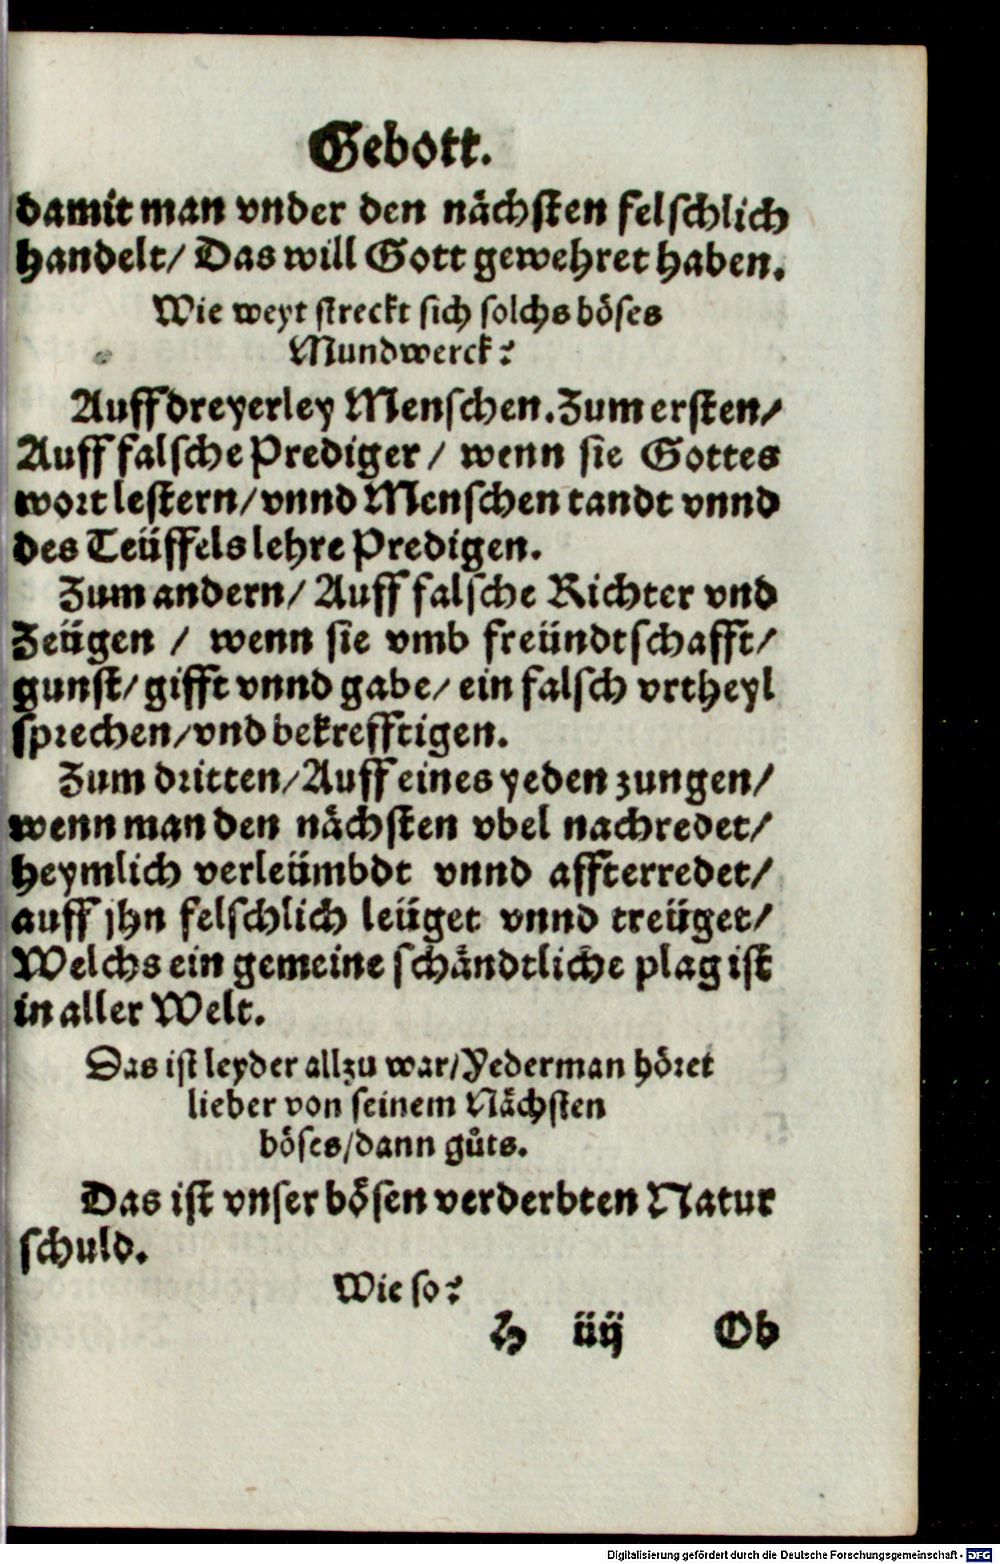 Gebott.
damit man vnder den nächsten felschlich
handelt/ Das will Gott gewehret haben.
Wie weyt streckt sich solchs böses
Mundwerck?
Auff dreyerley Menschen. Zum ersten/
Auff falsche Prediger / wenn sie Gottes
wort lestern/ vnnd Menschen tandt vnnd
des Teüffels lehre Predigen.
Zum andern/ Auff falsche Richter vnd
Zeügen / wenn sie vmb freündtschafft/
gunst/ gifft vnnd gabe/ ein falsch vrtheyl
sprechen/ vnd bekrefftigen.
Zum dritten/ Auff eines yeden zungen/
wenn man den nächsten vbel nachredet/
heymlich verleümbdt vnnd affterredet/
auff jhn felschlich leüget vnnd treüget/
Welchs ein gemeine schändtliche plag ist
in aller Welt.
Das ist leyder allzu war/ Yederman höret
lieber von seinem Nächsten
böses/ dann gůts.
Das ist vnser bösen verderbten Natur
schuld.
Wie so?
H iiij Ob
Digitalisierung gefördert durch die Deutsche Forschungsgemeinschaft - DFG